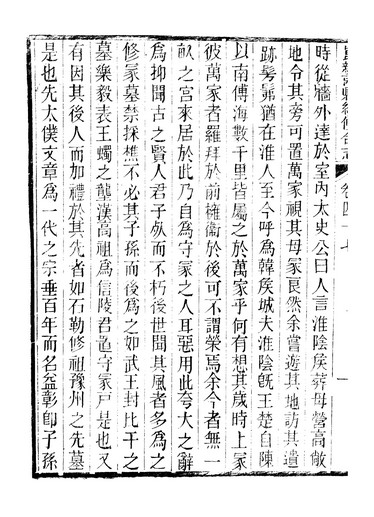 崑新兩縣續修合志 卷四十七 一
時從牆外達於室內太史公曰人言淮陰侯葬母營高敞
地令其旁可置萬家視其母冢良然余嘗遊其地訪其遺
跡髣髴猶在淮人至今呼爲韓侯城夫淮陰旣王楚自陳
以南傅海數千里皆屬之於萬家乎何有想其歲時上冢
彼萬家者羅拜於前擁衛於後可不謂榮焉余今者無一
畝之宮來居於此乃自爲守冢之人耳惡用此夸大之辭
爲抑聞古之賢人君子歿而不朽後世聞其風者多爲之
修冢墓禁採樵不必其子孫而後爲之如武王封比干之
墓樂毅表王蠋之壟漢高祖爲信陵君邑守冢戶是也又
有因其後人而加禮於其先者如石勒修祖豫州之先墓
是也先太僕文章爲一代之宗垂百年而名益彰卽子孫